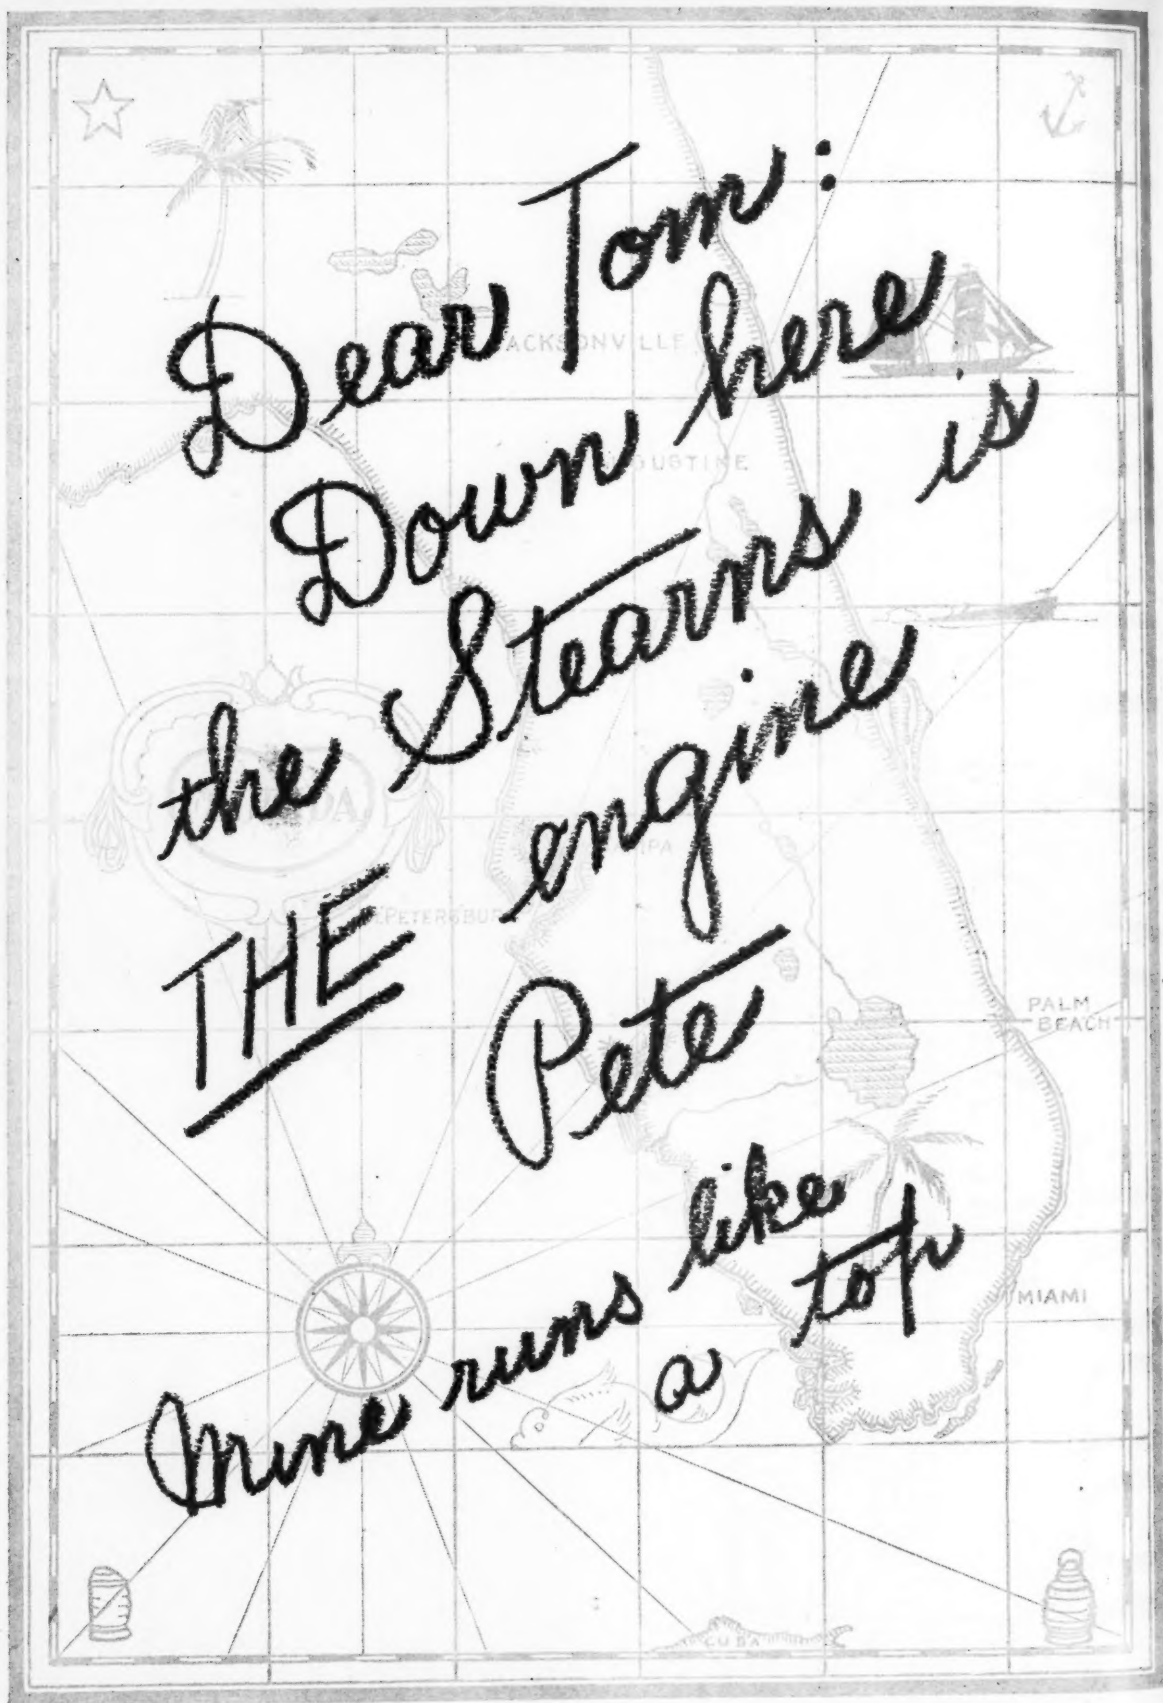 Dear Tom:
Down here
the Stearns is
THE engine
Pete
Mine runs like
a top
JACKSONVILLE
AUGUSTINE
PALM
BEACH
MIAMI
CUBA